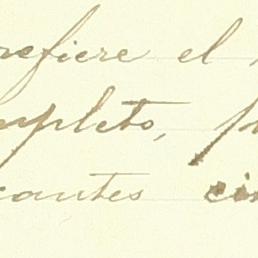 refiere el
mpleto,
cantes